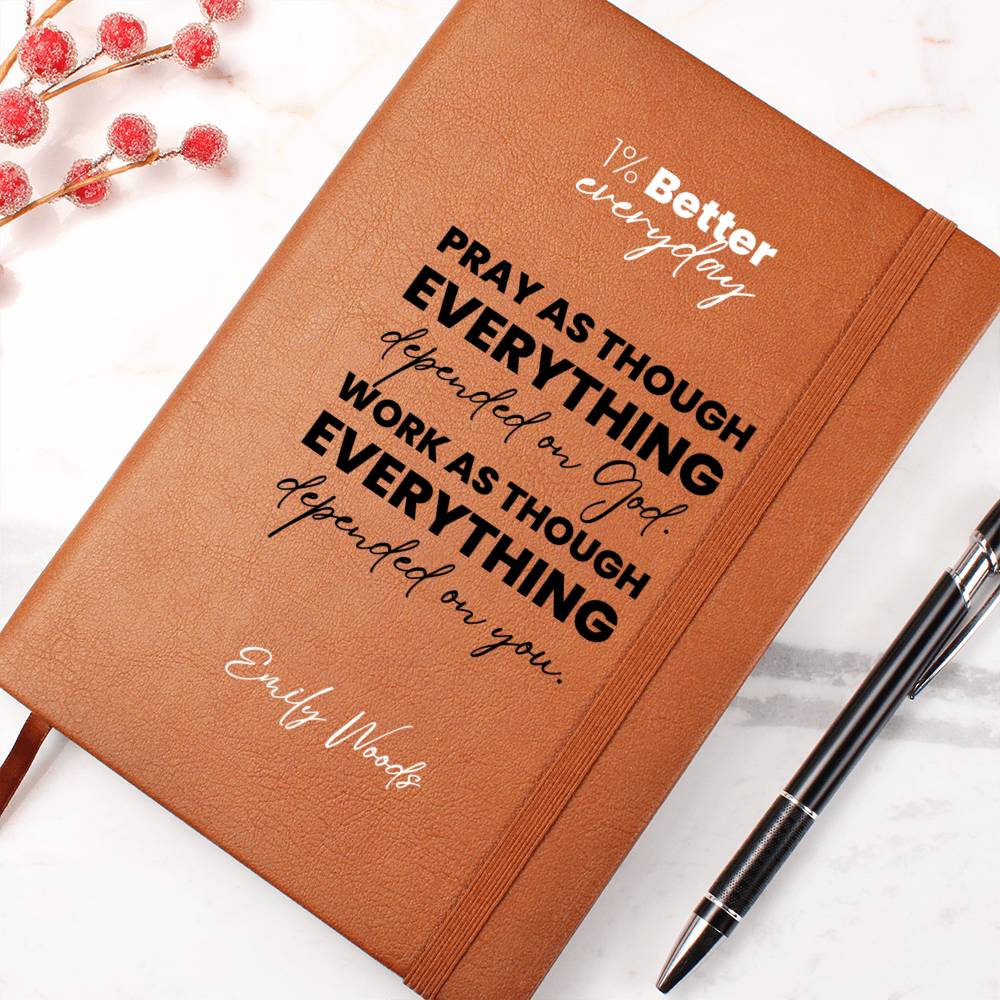 1% Better
everyday
PRAY AS THOUGH
EVERYTHING
depended on God.
WORK AS THOUGH
EVERYTHING
depended on you.
Emily Woods